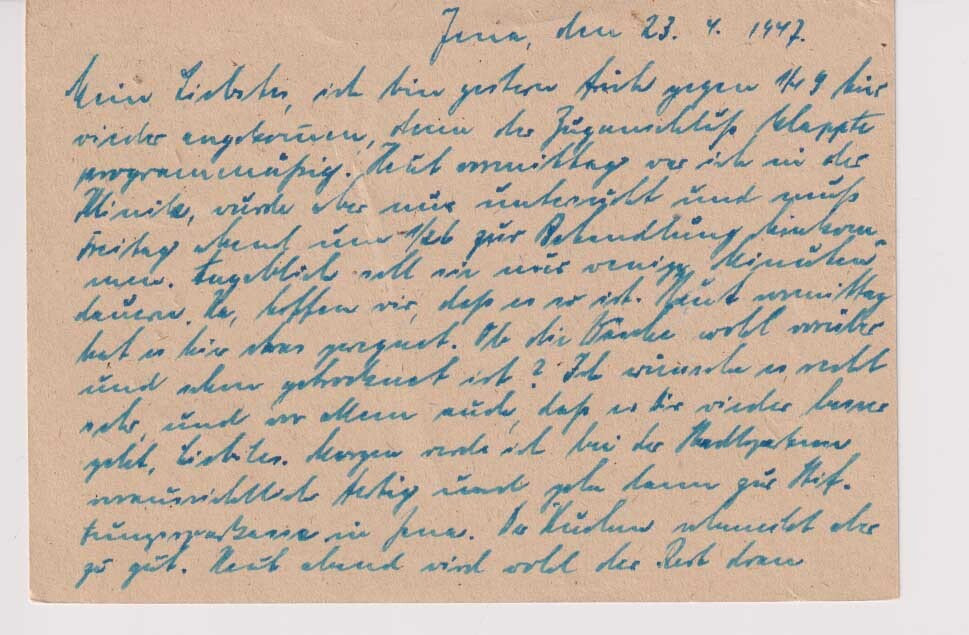 Jena, den 23. 4. 1947.
Mein Liebstes, ich bin gestern früh gegen 1/2 9 hier
wieder angekommen, denn der Zuganschluß klappte
programmäßig. Heut vormittag war ich in der
Klinik, wurde aber nur untersucht und muß
Freitag abend um 1/2 6 zur Behandlung hinkom-
men. Angeblich soll sie nur wenige Minuten
dauern. Na, hoffen wir, daß es so ist. Heut vormittag
hat es hier etwas geregnet. Ob die wohl vorüber
und schon getrocknet ist? Ich wünsche es recht
sehr, und vor allem auch, daß es Dir wieder besser
geht, Liebstes. Morgen werde ich bei der Stadtsparkasse
voraussichtlich fertig und gehe dann zur Stif-
tungssparkasse in Jena. Der Kuchen schmeckt aber
zu gut. Heut abend wird wohl der Rest dran